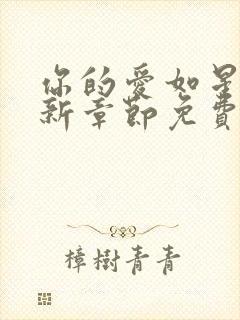 你的愛如星
新章節免費
樟樹青青